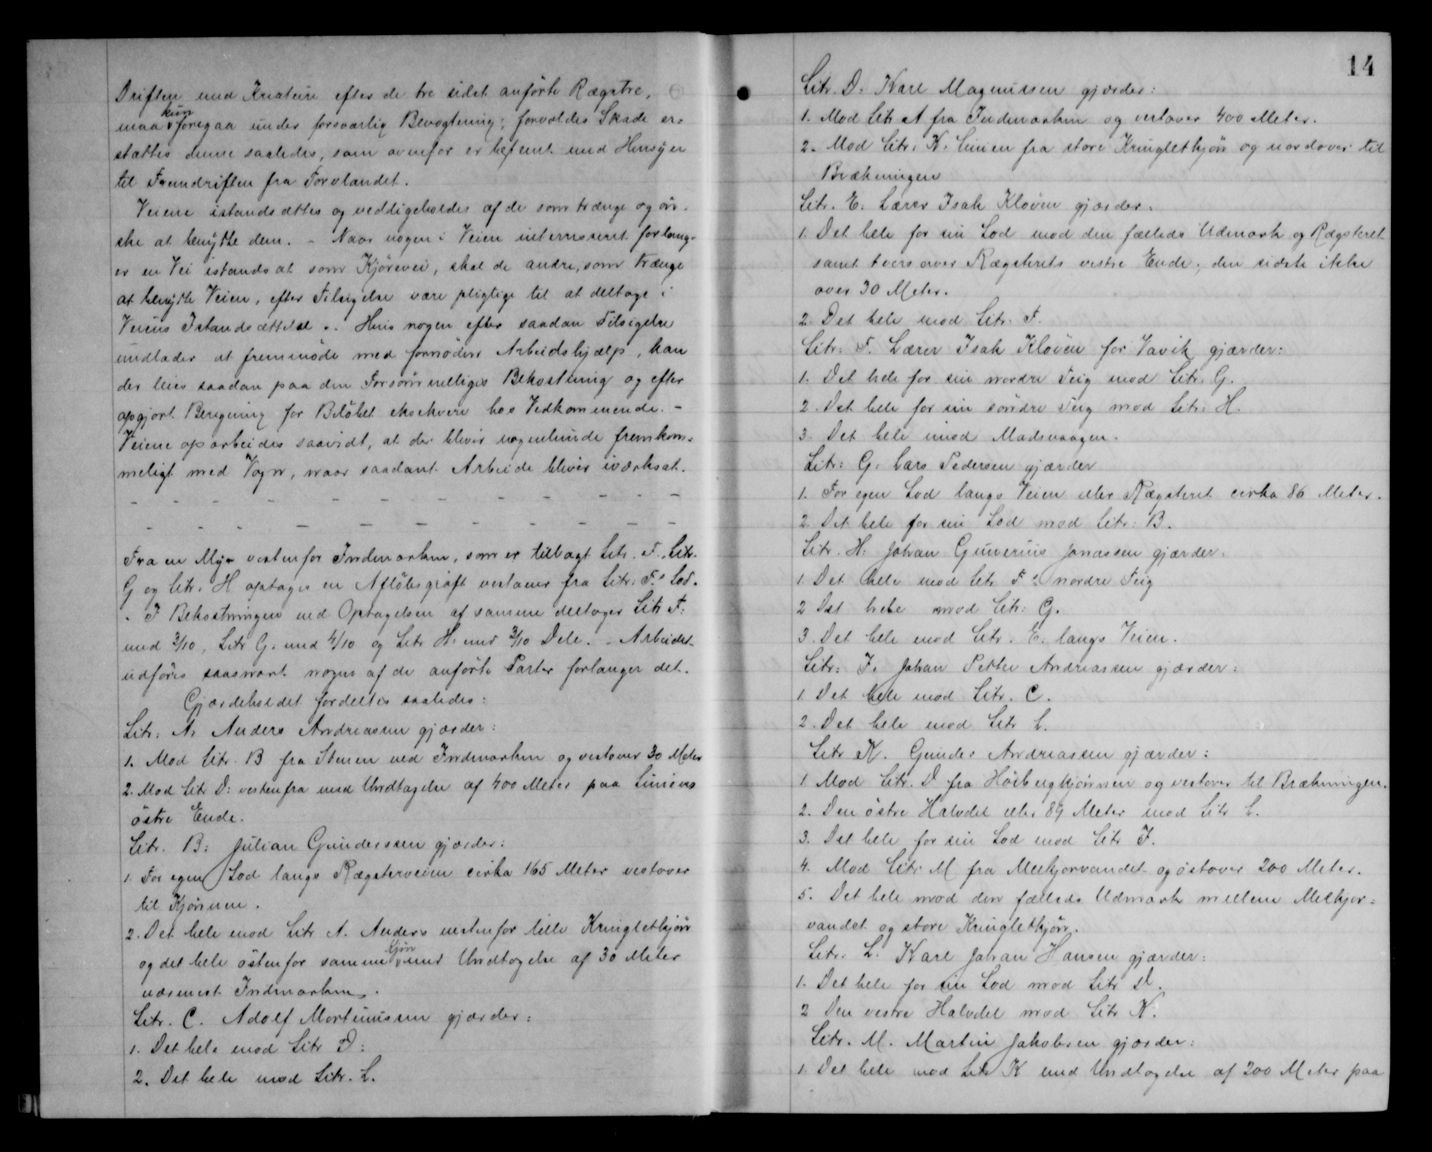 Driften med Kreature efter de tre sidst anførte Rægstre,
maa kun foregaa under forsvarlig Bevogtning; forvoldes Skade er-
stattes denne saaledes, som ovenfor er bestemt med Hensyn
til Fremdriften fra Forvlandet.
Veiene istandsættes og vedligeholdes af de som trænge og øn-
ske at benytte dem. - Naar nogen i Veien interesseret forlang-
er en Vei istandsat som Kjørevei, skal de andre, som trænge
at benytte Veien, efter Tilsigelse være pligtige til at deltage i
Veiens Istandsættelse. Hvis nogen efter saadan Tilsigelse
undlader at fremmøde med fornøden Arbeidshjælp, kan
der leies saadan paa den Forsømmeliges Bekostning og efter
opgjort Beregning for Beløbet ekskvere hos Vedkommende. -
Veiene oparbeides saavidt, at der bliver nogenlunde fremkom-
meligt med Vogn, naar saadant Arbeide bliver iværksat.
- - - - - - - - - - - - - -
- - - - - - - - - - - - - -
Fra en Myr vestenfor Indmarken, som er tillagt Litr. F., Litr.
G og Litr. H optages en Afløbsgrøft vestover fra Litr: F.s Lod.
- I Bekostningen ved Optagelsen af samme deltager Litr F:
med 3/10, Litr G. med 4/10 og Litr H. med 3/10 Dele. - Arbeidet
udføres saasnart nogen af de anførte Parter forlanger det.
Gjærdeholdet fordeltes saaledes:
Litr: A. Anders Andreassen gjærder:
1. Mod Litr. B fra Stenen ved Indmarken og vestover 30 Meter
2. Mod Litr D: vestenfra med Undtagelse af 400 Meter paa Liniens
østre Ende.
Litr. B: Julian Gundersen gjærder:
1. For egen Lod langs Rægsterveien cirka 165 Meter vestover
til Kjønnen.
2. Det hele mod Litr A. Anders vestenfor lille Kringletkjøn
og det hele østenfor samme Kjøn med Undtagelse af 30 Meter
nærmest Indmarken.
Litr. C. Adolf Mortinussen gjærder:
1. Det hele mod Litr I:
2. Det hele mod Litr. L.
14
Litr. D. Karl Magnussen gjærder:
1. Mod Litr A fra Indmarken og vestover 400 Meter.
2. Mod Litr: K. Linien fra store Kringletkjøn og nordover til
Brækningen
Litr. E. Lærer Isak Kløven gjærder.
1. Det hele for sin Lod mod den fælleds Udmark og Rægsteret
samt tvers over Rægsterets vestre Ende, den sidste ikke
over 30 Meter.
2. Det hele mod Litr. F.
Litr: F. Lærer Isak Kløven for Vavik gjærder:
1. Det hele for sin nordre Teig mod Litr. G.
2. Det hele for sin søndre Teig mod Litr: H.
3. Det hele imod Madsvaagen.
Litr: G. Lars Pedersen gjærder
1. For egen Lod langs Veien eller Rægsteret cirka 86 Meter.
2. Det hele for sin Lod mod Litr: B.
Litr. H: Johan Gunerius Jonassen gjærder.
1. Det hele mod Litr F.s nordre Teig
2 Det hele mod Litr: G.
3. Det hele mod Litr. E. langs Veien.
Litr: I. Johan Petter Andreassen gjærder:
1. Det hele mod Litr. C.
2. Det hele mod Litr L.
Litr K. Gunder Andreassen gjærder:
1 Mod Litr. D fra Høibergkjønnen og vestover til Brækningen.
2. Den østre Halvdel eller 89 Meter mod Litr L.
3. Det hele for sin Lod mod Litr I.
4. Mod Litr M fra Melkjorvandet og østover 200 Meter.
5. Det hele mod den fælleds Udmark mellem Melkjor-
vandet og store Kringletkjøn.
Litr. L. Karl Johan Hansen gjærder:
1. Det hele for sin Lod mod Litr D.
2 Den vestre Halvdel mod Litr K.
Litr. M. Martin Jakobsen gjærder:
1. Det hele mod Litr K med Undtagelse af 200 Meter paa